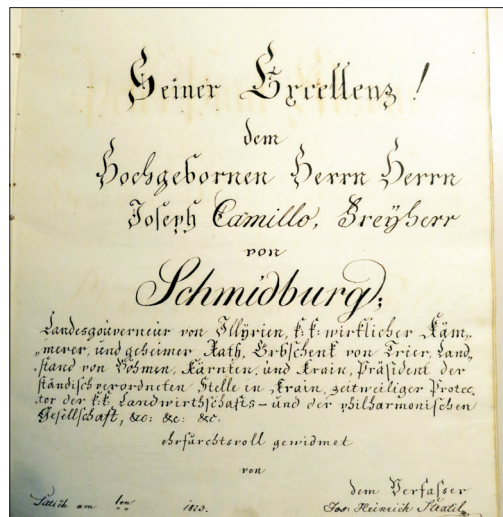 Seiner Excellenz!
dem
Hochgebornen Herrn Herrn
Joseph Camillo, Freÿherr
von
Schmidburg;
Landesgouverneur von Illÿrien, k: k: wirklicher Käm„
„merer, und geheimer Rath, Erbschenk von Trier, Land„
stand von Böhmen, Kärnten, und Krain, Präsident der
ständisch verordneten Stelle in Krain, zeitweiliger Protec„
tor der k: k. Landwirthschafts- und der philharmonischen
Gesellschaft, &c: &c: &c.
ehrfurchtsvoll gewidmet
von
dem Verfasser
Sittich am 1823. Jos: Heinrich